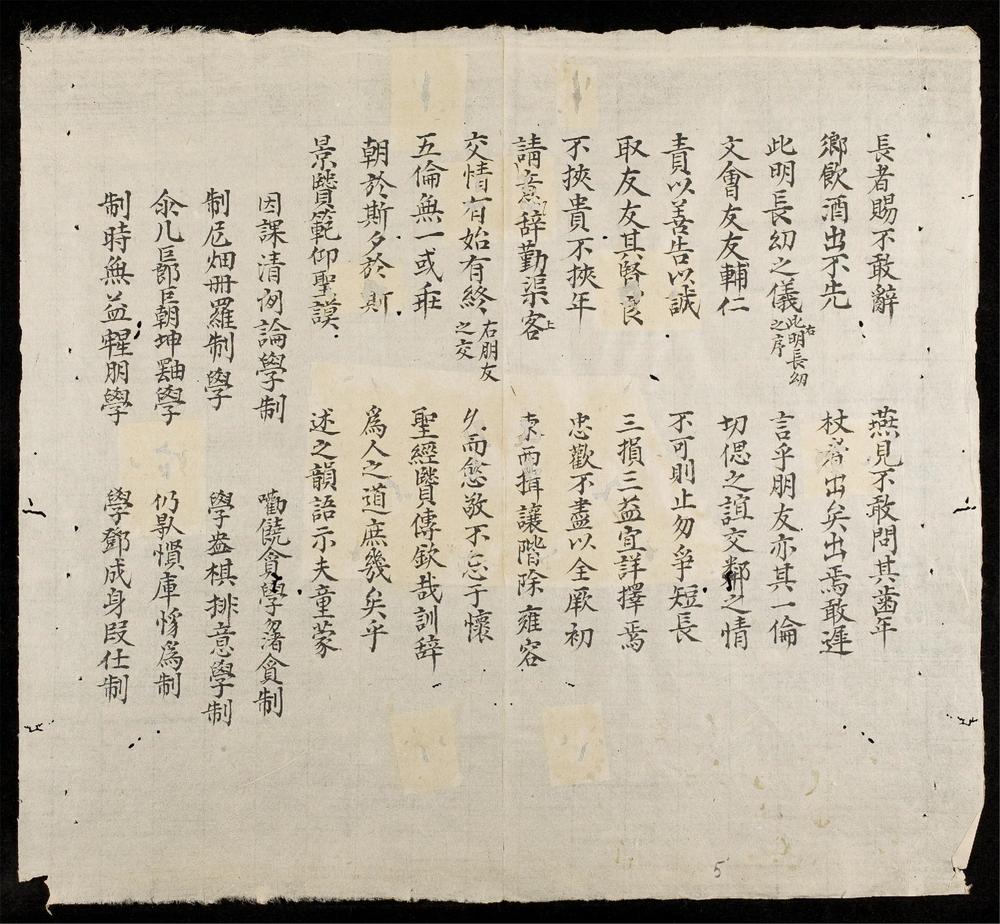 長者賜不敢辭 燕見不敢問其歯年
鄉飲酒出不先 杖者出矣出焉敢遲
此明長幼之儀 右此明長幼之序 言乎朋友亦其一倫
文會友友輔仁 切偲之誼交鄰之情
責以善告以誠 不可則止勿爭短長
取友友其賢良 三損三益宜詳擇焉
不挾貴不挾年 忠歡不盡以全厥初
請意辞勤渠客上 東西揖讓階除雍容
交情有始有終 右朋友之交 久而愈敬不忘于懷
五倫無一或乖 聖經賢傳欽哉訓辞
朝於斯夕於斯 爲人之道庶幾矣乎
景賢範仰聖謨 述之韻語示夫童蒙
因課清例論學制 貪學 貪制
制 畑冊羅制學 學 棋排意學制
朝坤 學 仍 慣庫 爲制
制時無益 朋學 學鄧成身段仕制
5